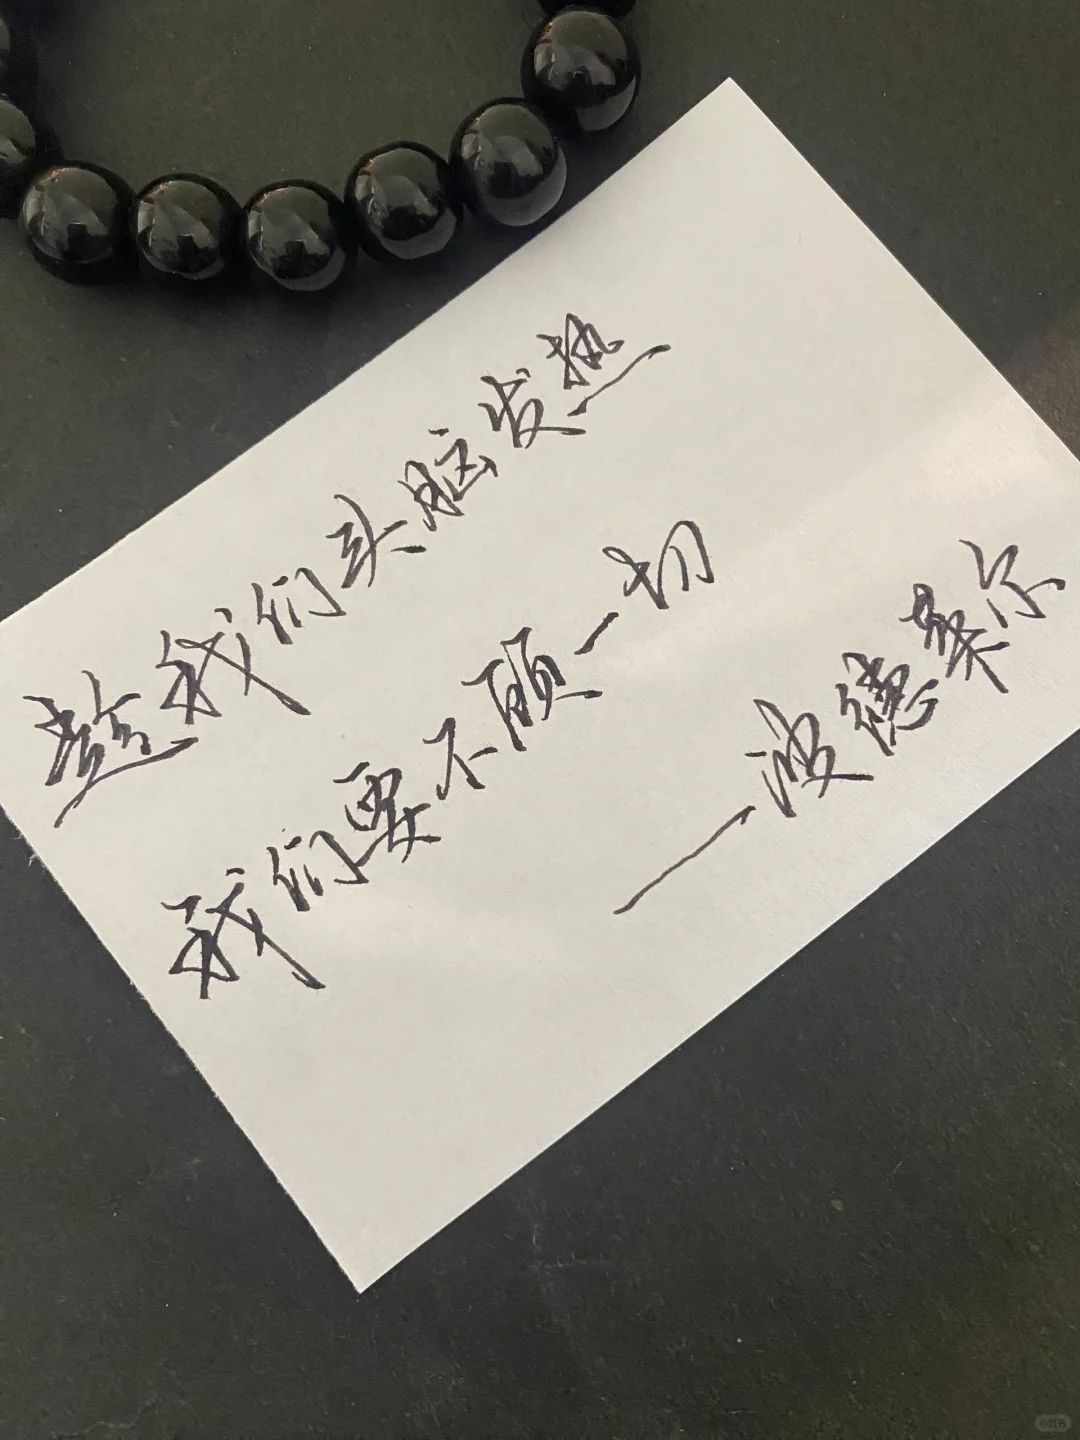 趁我们头脑发热
我们要不顾一切
—波德莱尔
小红书